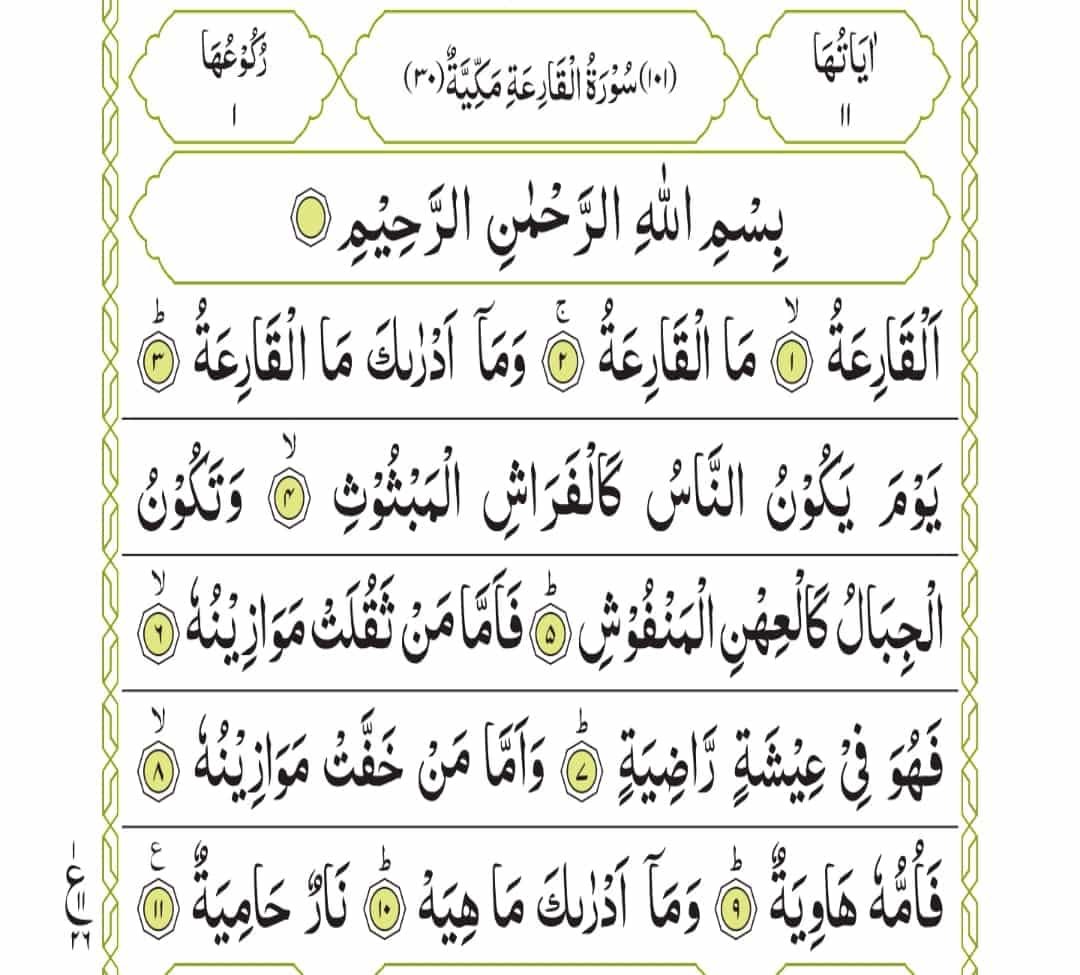 اٰيَاتُهَا ١١
(١٠١) سُوْرَةُ الْقَارِعَةِ مَكِّيَّةٌ (٣٠)
رُكُوْعُهَا ١
بِسْمِ اللّٰهِ الرَّحْمٰنِ الرَّحِيْمِ
اَلْقَارِعَةُ ۙ ١ مَا الْقَارِعَةُ ۚ ٢ وَمَاۤ اَدْرٰىكَ مَا الْقَارِعَةُ ؕ ٣
يَوْمَ يَكُوْنُ النَّاسُ كَالْفَرَاشِ الْمَبْثُوْثِ ۙ ۴ وَتَكُوْنُ
الْجِبَالُ كَالْعِهْنِ الْمَنْفُوْشِ ؕ ۵ فَاَمَّا مَنْ ثَقُلَتْ مَوَازِيْنُهٗ ۙ ٦
فَهُوَ فِيْ عِيْشَةٍ رَّاضِيَةٍ ؕ ٧ وَاَمَّا مَنْ خَفَّتْ مَوَازِيْنُهٗ ۙ ٨
فَاُمُّهٗ هَاوِيَةٌ ؕ ٩ وَمَاۤ اَدْرٰىكَ مَا هِيَهْ ؕ ١٠ نَارٌ حَامِيَةٌ ع ١١
ع ١ ١١ ٢٦